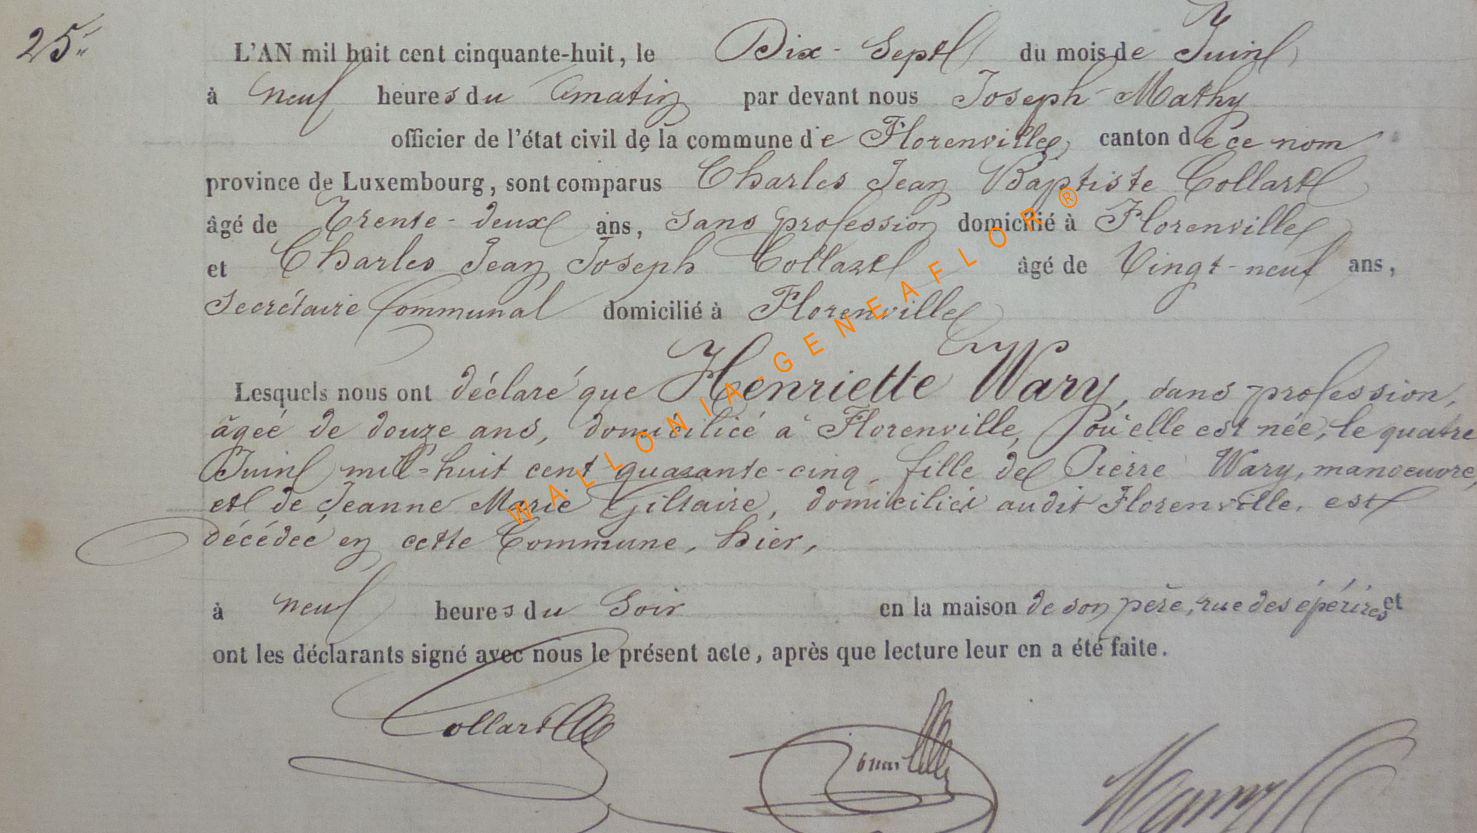 25.
L'AN mil huit cent cinquante-huit, le Dix-Sept du mois de Juin
à neuf heures du matin par devant nous Joseph Mathy
officier de l'état civil de la commune de Florenville, canton de ce nom
province de Luxembourg, sont comparus Charles Jean Baptiste Collart
âgé de Trente-deux ans, sans profession domicilié à Florenville
et Charles Jean Joseph Collart âgé de Vingt-neuf ans,
Secrétaire Communal domicilié à Florenville
Lesquels nous ont déclaré que Henriette Wary, sans profession,
âgée de douze ans, domiciliée à Florenville, où elle est née, le quatre
Juin mil-huit cent quarante-cinq, fille de Pierre Wary, manoeuvre,
et de Jeanne Marie Giltaire, domiciliés audit Florenville, est
décédée en cette Commune, hier,
à neuf heures du Soir en la maison de son père, rue des épérires et
ont les déclarants signé avec nous le présent acte, après que lecture leur en a été faite.
Collart
WALLONIA-GENEAFLOR ®